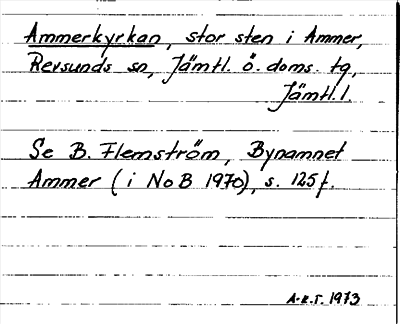 Ammerkyrkan, stor sten i Ammer,
Revsunds sn, Jämtl. ö. doms. tg,
Jämtl. l.
Se B. Flemström, Bynamnet
Ammer (i NoB 1970), s. 125 f.
A.R.S. 1973